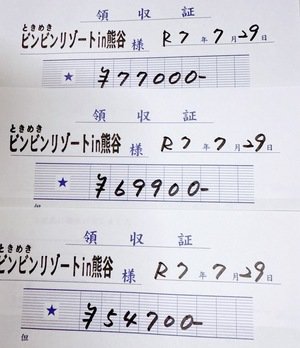 領収証
ときめき
ピンピンリゾートin熊谷 様 R7年7月29日
★ ¥77000-
領収証
ときめき
ピンピンリゾートin熊谷 様 R7年7月29日
★ ¥69900-
領収証
ときめき
ピンピンリゾートin熊谷 様 R7年7月29日
★ ¥54700-